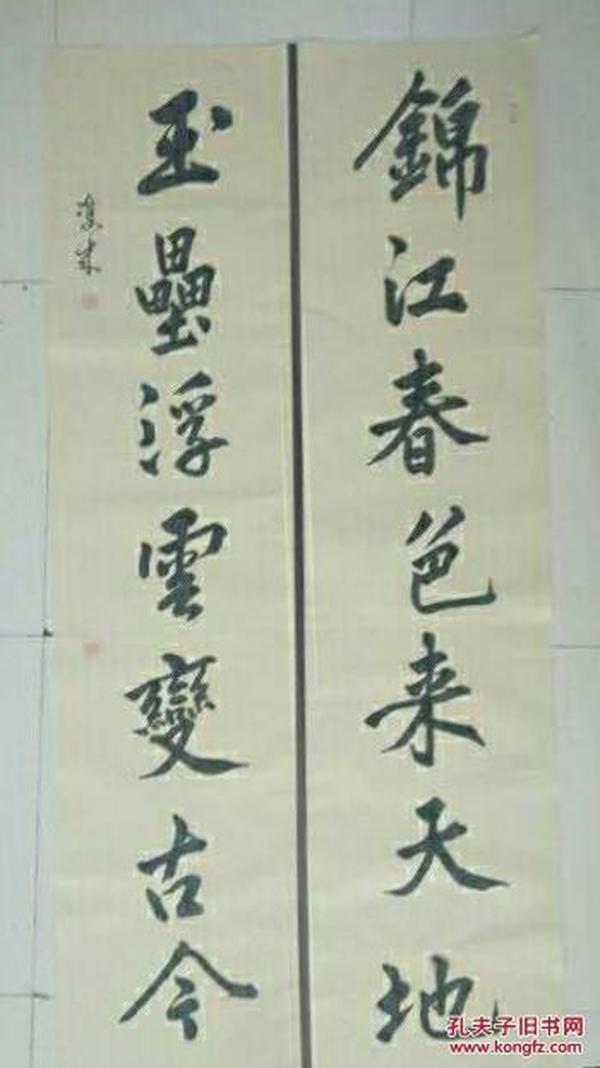 錦江春色来天地
玉壘浮雲變古今
孔夫子旧书网
www.kongfz.com